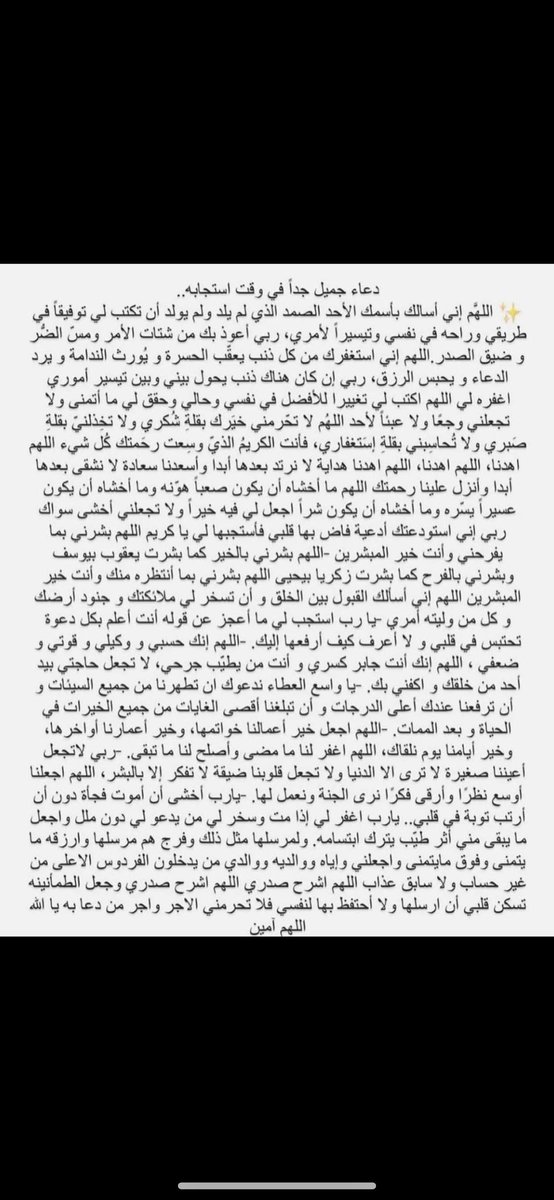 دعاء جميل جداً في وقت استجابه..
✨ اللهَّم إني أسالك بأسمك الأحد الصمد الذي لم يلد ولم يولد أن تكتب لي توفيقاً في
طريقي وراحه في نفسي وتيسيراً لأمري، ربي أعوذ بك من شتات الأمر ومسّ الضُّر
و ضيق الصدر.اللهم إني استغفرك من كل ذنب يعقّب الحسرة و يُورث الندامة و يرد
الدعاء و يحبس الرزق، ربي إن كان هناك ذنب يحول بيني وبين تيسير أموري
اغفره لي اللهم اكتب لي تغييرا للأفضل في نفسي وحالي وحقق لي ما أتمنى ولا
تجعلني وجعًا ولا عبئاً لأحد اللهُم لا تحّرمني خيَرك بقلةِ شُكري ولا تخِذلنيّ بقلةِ
صَبري ولا تُحاسِبني بقلةِ إستَغفاري، فأنت الكريمُ الذيّ وسِعت رحَمتك كُل شيء اللهم
اهدنا، اللهم اهدنا، اللهم اهدنا هداية لا نرتد بعدها أبدا وأسعدنا سعادة لا نشقى بعدها
أبدا وأنزل علينا رحمتك اللهم ما أخشاه أن يكون صعباً هوّنه وما أخشاه أن يكون
عسيراً يسّره وما أخشاه أن يكون شراً اجعل لي فيه خيراً ولا تجعلني أخشى سواك
ربي إني استودعتك أدعية فاض بها قلبي فأستجبها لي يا كريم اللهم بشرني بما
يفرحني وأنت خير المبشرين -اللهم بشرني بالخير كما بشرت يعقوب بيوسف
وبشرني بالفرح كما بشرت زكريا بيحيى اللهم بشرني بما أنتظره منك وأنت خير
المبشرين اللهم إني أسألك القبول بين الخلق و أن تسخر لي ملائكتك و جنود أرضك
و كل من وليته أمري -يا رب استجب لي ما أعجز عن قوله أنت أعلم بكل دعوة
تحتبس في قلبي و لا أعرف كيف أرفعها إليك. -اللهم إنك حسبي و وكيلي و قوتي و
ضعفي ، اللهم إنك أنت جابر كسري و أنت من يطيّب جرحي، لا تجعل حاجتي بيد
أحد من خلقك و اكفني بك. -يا واسع العطاء ندعوك ان تطهرنا من جميع السيئات و
أن ترفعنا عندك أعلى الدرجات و أن تبلغنا أقصى الغايات من جميع الخيرات في
الحياة و بعد الممات. -اللهم اجعل خير أعمالنا خواتمها، وخير أعمارنا أواخرها،
وخير أيامنا يوم نلقاك، اللهم اغفر لنا ما مضى وأصلح لنا ما تبقى. -ربي لاتجعل
أعيننا صغيرة لا ترى الا الدنيا ولا تجعل قلوبنا ضيقة لا تفكر إلا بالبشر، اللهم اجعلنا
أوسع نظرًا وأرقى فكرًا نرى الجنة ونعمل لها. -يارب أخشى أن أموت فجأة دون أن
أرتب توبة في قلبي.. يارب اغفر لي إذا مت وسخر لي من يدعو لي دون ملل واجعل
ما يبقى مني أثر طيّب يترك ابتسامه. ولمرسلها مثل ذلك وفرج هم مرسلها وارزقه ما
يتمنى وفوق مايتمنى واجعلني وإياه ووالديه ووالدي من يدخلون الفردوس الاعلى من
غير حساب ولا سابق عذاب اللهم اشرح صدري اللهم اشرح صدري وجعل الطمأنينه
تسكن قلبي أن ارسلها ولا أحتفظ بها لنفسي فلا تحرمني الاجر واجر من دعا به يا الله
اللهم آمين